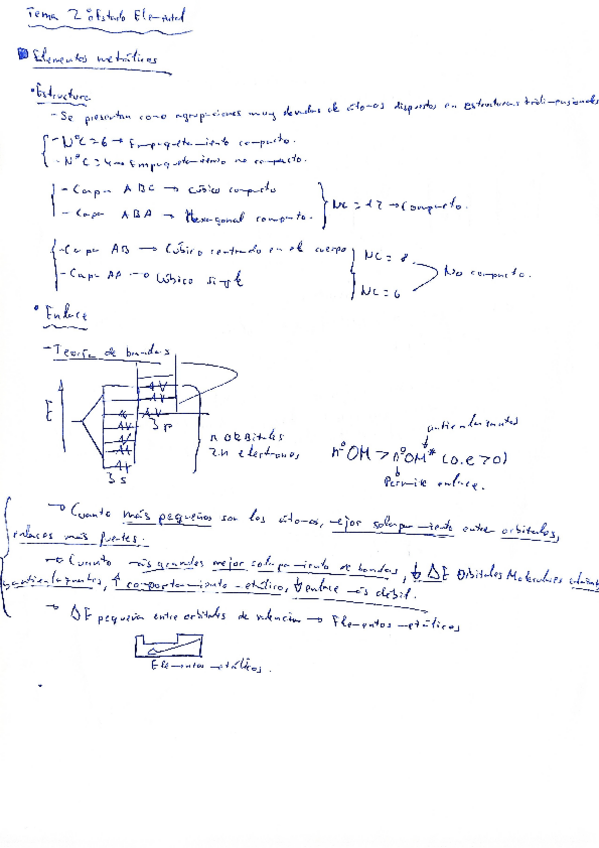 Tema 2: Estado Elemental
Elementos metálicos
• Estructura
- Se presentan como agrupaciones muy densas de átomos dispuestos en estructuras tridimensionales
- NºC = 6 → Empaquetamiento compacto.
- NºC = 4 → Empaquetamiento no compacto.
- Capa ABC → Cúbico compacto
- Capa ABA → Hexagonal compacto.
NC = 12 → Compacto.
- Capa AB → Cúbico centrado en el cuerpo
- Capa AA → Cúbico simple
NC = 8
NC = 6
No compacto.
• Enlace
- Teoría de bandas
E
3p
3s
n orbitales
2n electrones
antienlazantes
nºOM > nºOM* (o.e > 0)
Permite enlace.
→ Cuanto más pequeños son los átomos, mejor solapamiento entre orbitales,
enlaces más fuertes.
→ Cuanto más grandes mejor solapamiento de bandas, ↓ ΔE Orbitales Moleculares
y antienlazantes, ↑ comportamiento metálico, ↓ enlace más débil.
→ ΔE pequeña entre orbitales de valencia → Elementos metálicos
Elementos metálicos.